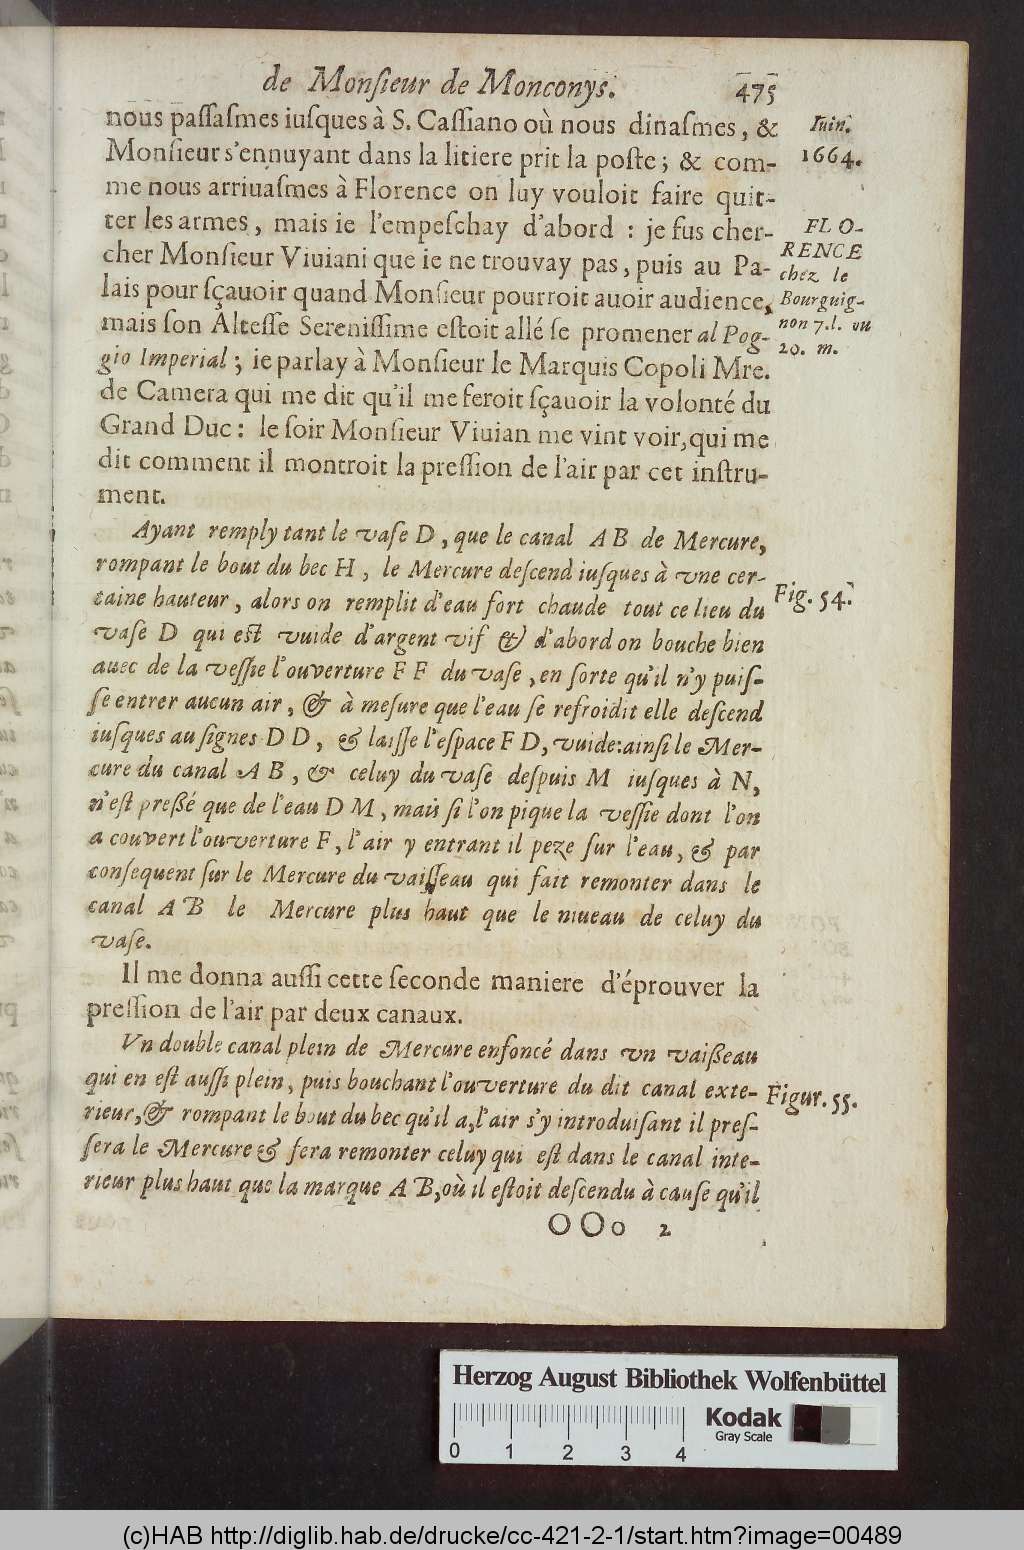 de Monſieur de Monconys. 475
nous paſſaſmes iuſques à S. Caſſiano où nous dinaſmes, &
Monſieur s'ennuyant dans la litiere prit la poſte; & com-
me nous arriuaſmes à Florence on luy vouloit faire quit-
ter les armes, mais ie l'empeſchay d'abord : je fus cher-
cher Monſieur Viuiani que ie ne trouvay pas, puis au Pa-
lais pour ſçauoir quand Monſieur pourroit auoir audience,
mais ſon Alteſſe Sereniſſime eſtoit allé ſe promener al Pog-
gio Imperial; ie parlay à Monſieur le Marquis Copoli Mre.
de Camera qui me dit qu'il me feroit ſçauoir la volonté du
Grand Duc: le ſoir Monſieur Viuian me vint voir, qui me
dit comment il montroit la preſſion de l'air par cet inſtru-
ment.
Iuin.
1664.
FLO-
RENCE
chez le
Bourguig-
non 7. l. ou
20. m.
Ayant remply tant le vaſe D, que le canal AB de Mercure,
rompant le bout du bec H, le Mercure deſcend iuſques à vne cer-
taine hauteur, alors on remplit d'eau fort chaude tout ce lieu du
vaſe D qui eſt vuide d'argent vif & d'abord on bouche bien
auec de la veſſie l'ouverture FF du vaſe, en ſorte qu'il n'y puiſ-
ſe entrer aucun air, & à meſure que l'eau ſe refroidit elle deſcend
iuſques au ſignes DD, & laiſſe l'eſpace FD, vuide: ainſi le Mer-
cure du canal AB, & celuy du vaſe deſpuis M iuſques à N,
n'eſt preßé que de l'eau DM, mais ſi l'on pique la veſſie dont l'on
a couvert l'ouverture F, l'air y entrant il peze ſur l'eau, & par
conſequent ſur le Mercure du vaiſſeau qui fait remonter dans le
canal AB le Mercure plus haut que le niueau de celuy du
vaſe.
Fig. 54.
Il me donna auſſi cette ſeconde maniere d'éprouver la
preſſion de l'air par deux canaux.
Vn double canal plein de Mercure enfoncé dans vn vaißeau
qui en eſt auſſi plein, puis bouchant l'ouverture du dit canal exte-
rieur, & rompant le bout du bec qu'il a, l'air s'y introduiſant il preſ-
ſera le Mercure & fera remonter celuy qui eſt dans le canal inte-
rieur plus haut que la marque AB, où il eſtoit deſcendu à cauſe qu'il
Figur. 55.
OOo 2
Herzog August Bibliothek Wolfenbüttel
0 1 2 3 4
Kodak
Gray Scale
(c)HAB http://diglib.hab.de/drucke/cc-421-2-1/start.htm?image=00489